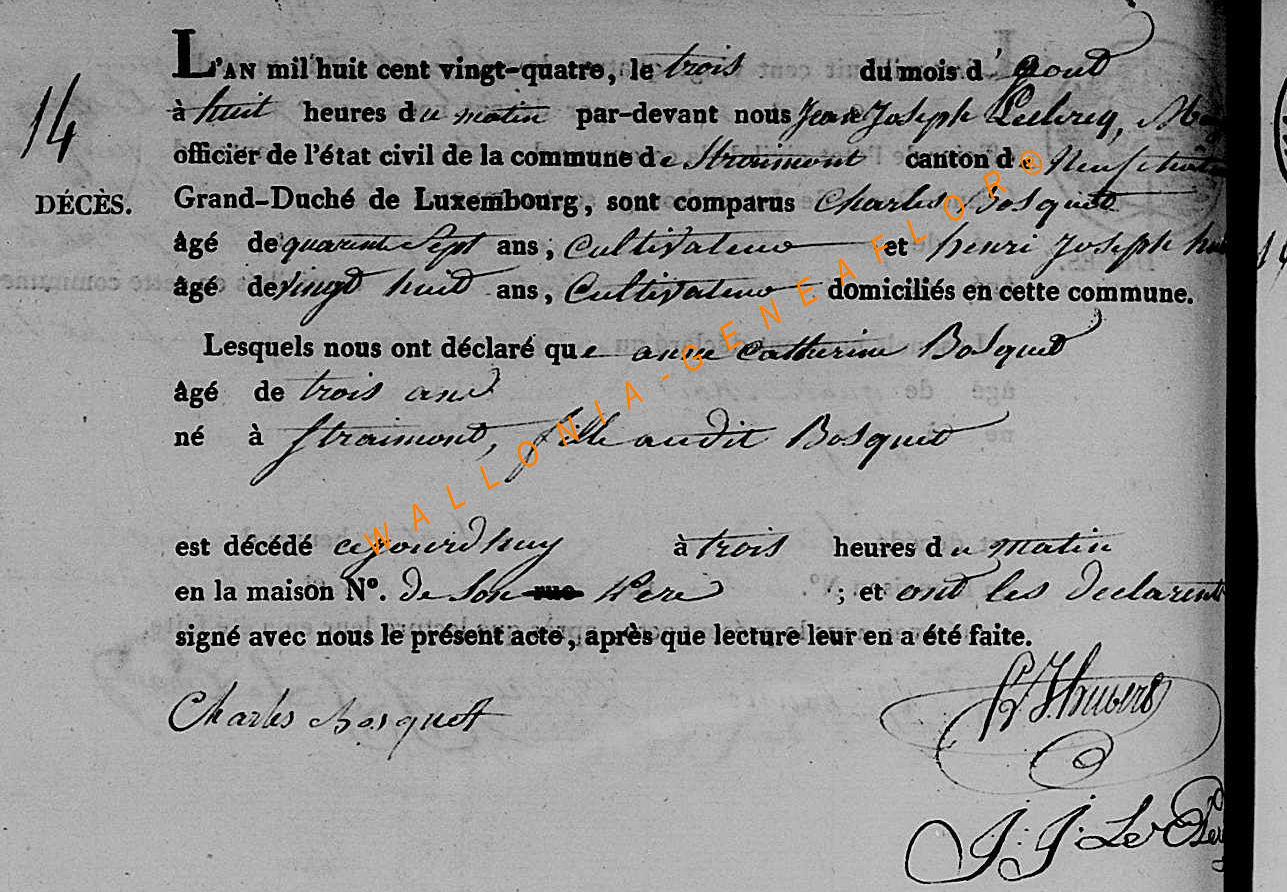 14
DÉCÈS.
L'AN mil huit cent vingt-quatre, le trois du mois d'aout
à huit heures du matin par-devant nous Jean Joseph Leclercq,
officier de l'état civil de la commune de Straimont canton de Neufchateau
Grand-Duché de Luxembourg, sont comparus Charles Bosquet
âgé de quarante Sept ans, Cultivateur et henri Joseph
âgé de vingt huit ans, Cultivateur domiciliés en cette commune.
Lesquels nous ont déclaré que anne Catherine Bosquet
âgé de trois ans
né à Straimont, fille audit Bosquet
est décédé cejourdhuy à trois heures du matin
en la maison N°. de Son rue Pere ; et ont les declarent
signé avec nous le présent acte, après que lecture leur en a été faite.
Charles Bosquet
hubert
J. J. Le
WALLONIA-GENEAFLOR©